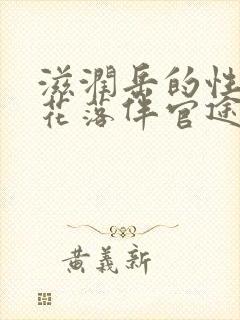 滋润岳的性
花落伴官途
黄义新